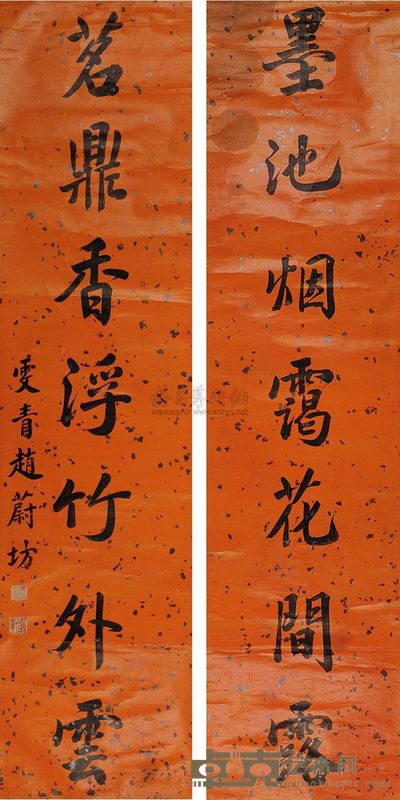 墨池烟靄花間露
茗鼎香浮竹外雲
雯青趙蔚坊